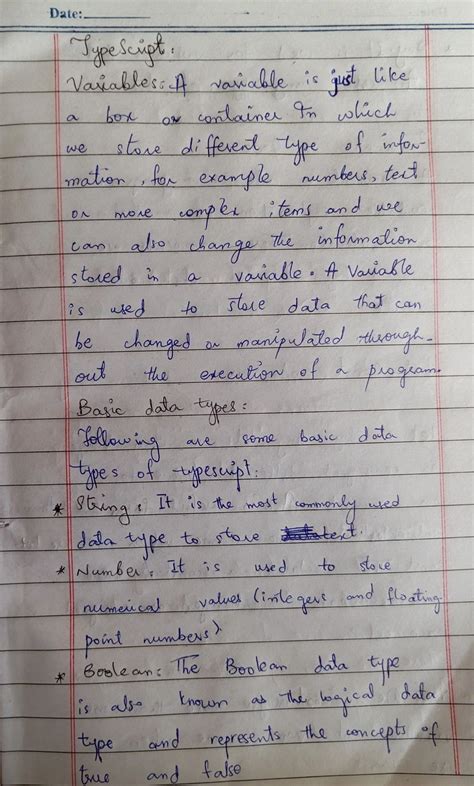 Date:
TypeScript:
Variables: A variable is just like
a box or container In which
we store different type of infor-
mation, for example numbers, text
or more complex items and we
can also change the information
stored in a variable. A Variable
is used to store data that can
be changed or manipulated through-
out the execution of a program.
Basic data types:
Following are some basic data
types of typescript:
* String: It is the most commonly used
data type to store text.
* Number: It is used to store
numerical values (integers and floating
point numbers).
* Boolean: The Boolean data type
is also known as the logical data
type and represents the concepts of
true and false